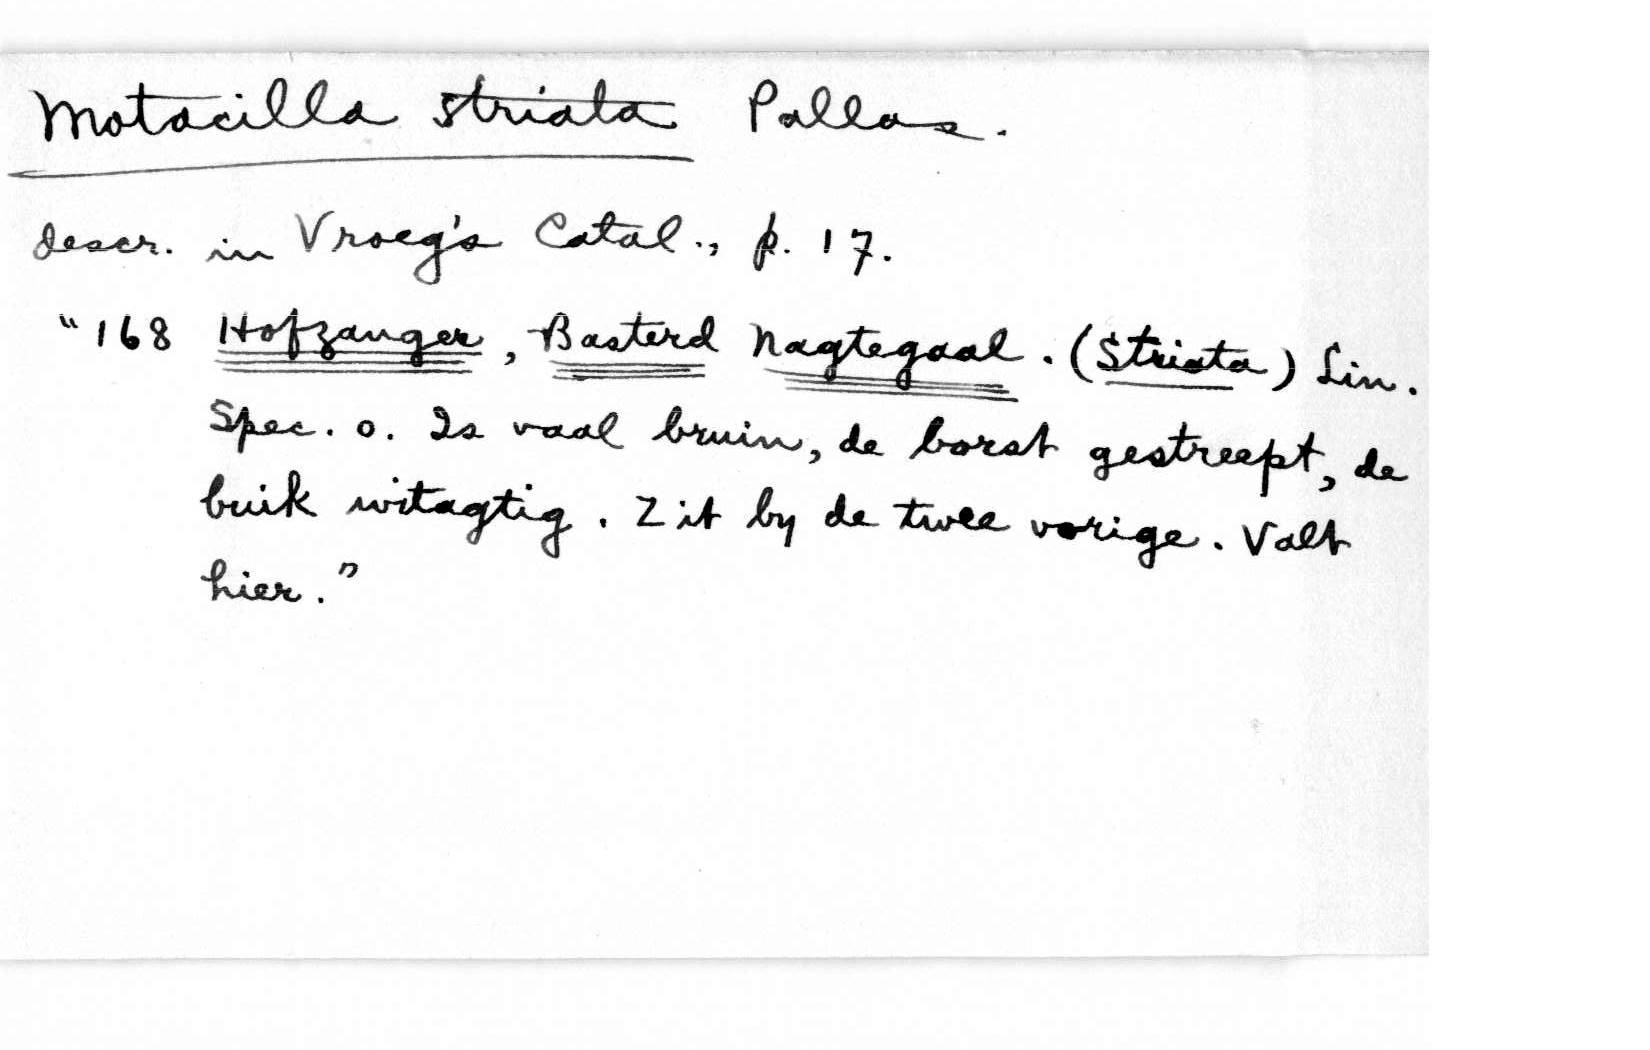 Motacilla striata Pallas.
descr. in Vroeg's Catal., p. 17.
"168 Hofzanger, Basterd Nagtegaal. (Striata) Lin.
Spec. 0. Is vaal bruin, de borst gestreept, de
buik witagtig. Zit by de twee vorige. Valt
hier."